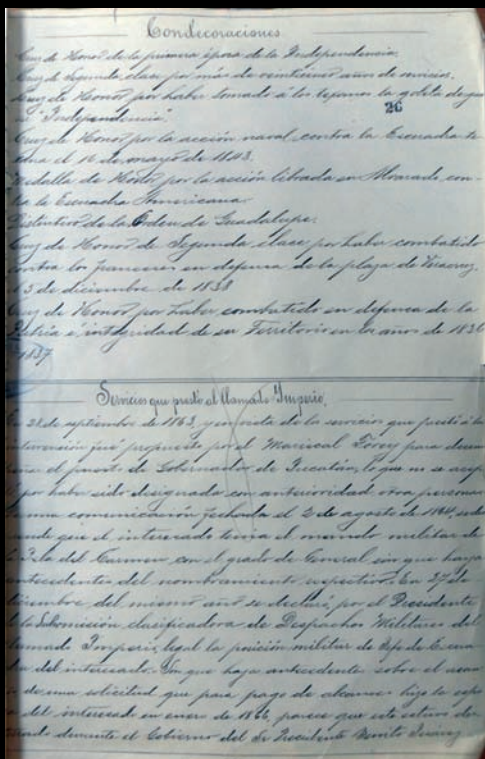 Condecoraciones
Cruz de Honor de la primera época de la Independencia.
Cruz de segunda clase por más de veinticinco años de servicios.
Cruz de Honor por haber tomado á los texanos la goleta de gue-
rra "Independencia".
26
Cruz de Honor por la acción naval, contra la Escuadra te-
xana el 16 de mayo de 1843.
Medalla de Honor por la acción librada en Alvarado, con-
tra la Escuadra Americana.
Distintivo de la Orden de Guadalupe.
Cruz de Honor de segunda clase por haber combatido
contra los franceses en defensa de la plaza de Veracruz,
el 5 de diciembre de 1838
Cruz de Honor por haber combatido en defensa de la
Patria é integridad de su Territorio en los años de 1836
1837
Servicios que prestó al llamado Imperio.
de septiembre de 1863, y en vista de los servicios que prestó á la
intervención fué propuesto por el Mariscal Forey para desem-
el puesto de Gobernador de Yucatán, lo que no se acep-
tó por haber sido designada con anterioridad otra persona
una comunicación fechada el 2 de agosto de 1864, se des-
prende que el interesado tenía el mando militar de
la Isla del Carmen con el grado de General sin que haya
antecedentes del nombramiento respectivo. En 27 de
diciembre del mismo año se declaró, por el Presidente
de la Subcomisión clasificadora de Despachos Militares del
llamado Imperio, legal la posición militar de Jefe de Escua-
dra del interesado. Sin que haya antecedentes sobre el
de una solicitud que para pago de alcances hizo la espo-
sa del interesado en enero de 1866, parece que este estuvo
durante el Gobierno del Sr Presidente Benito Juárez